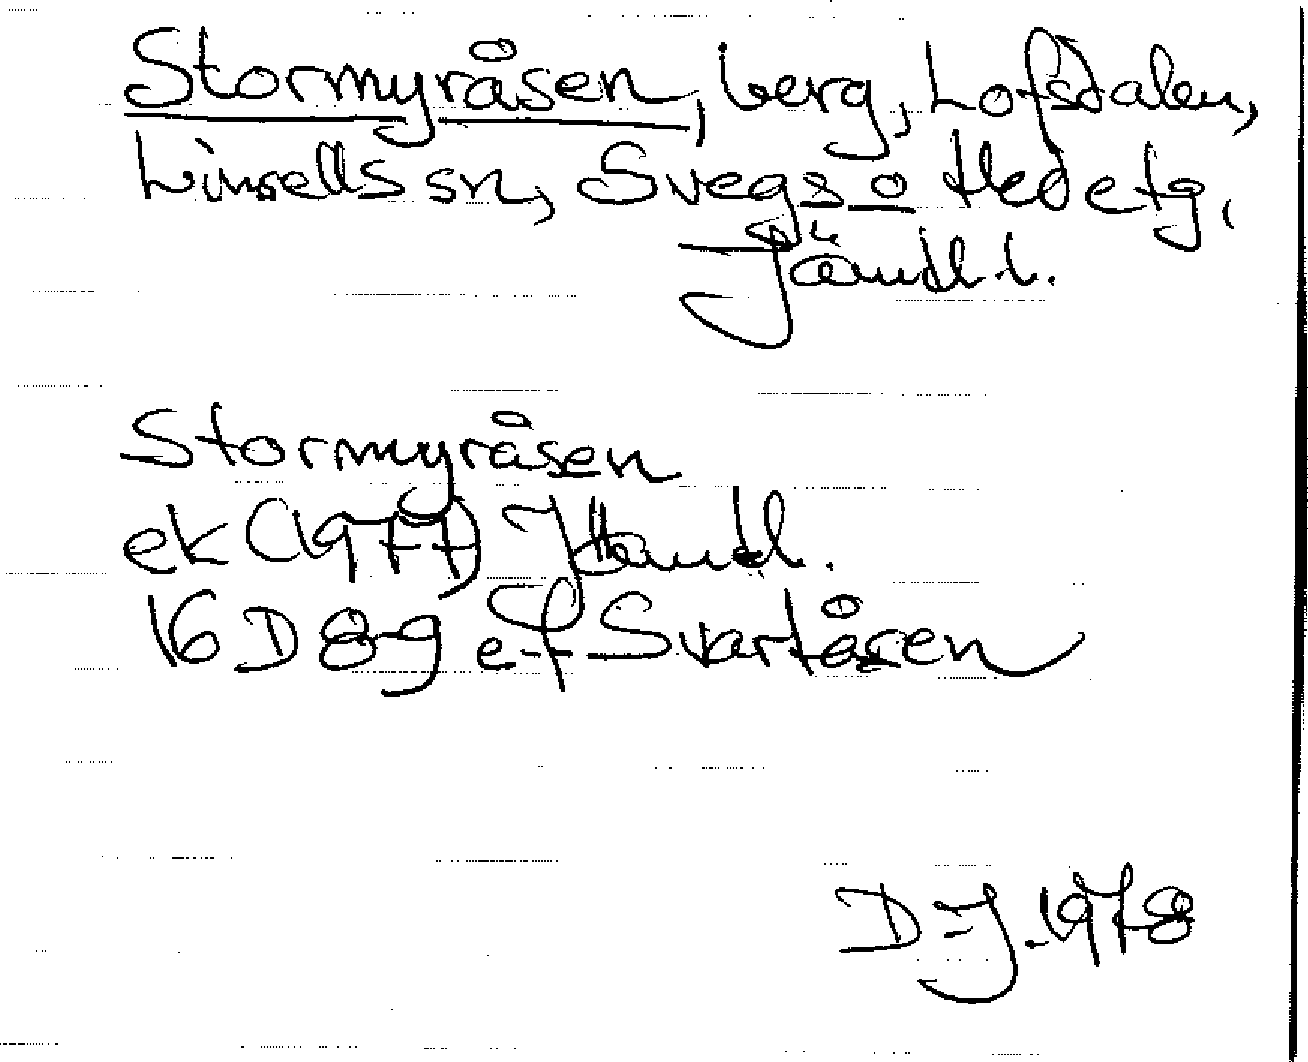 Stormyråsen, berg, Lofsdalen,
Linsells sn, Svegs o Hede tg,
Jämtl. l.
Stormyråsen
ek (1977) Jämtl.
16 D 8-9 e-f Svartåsen
D-J. 1978